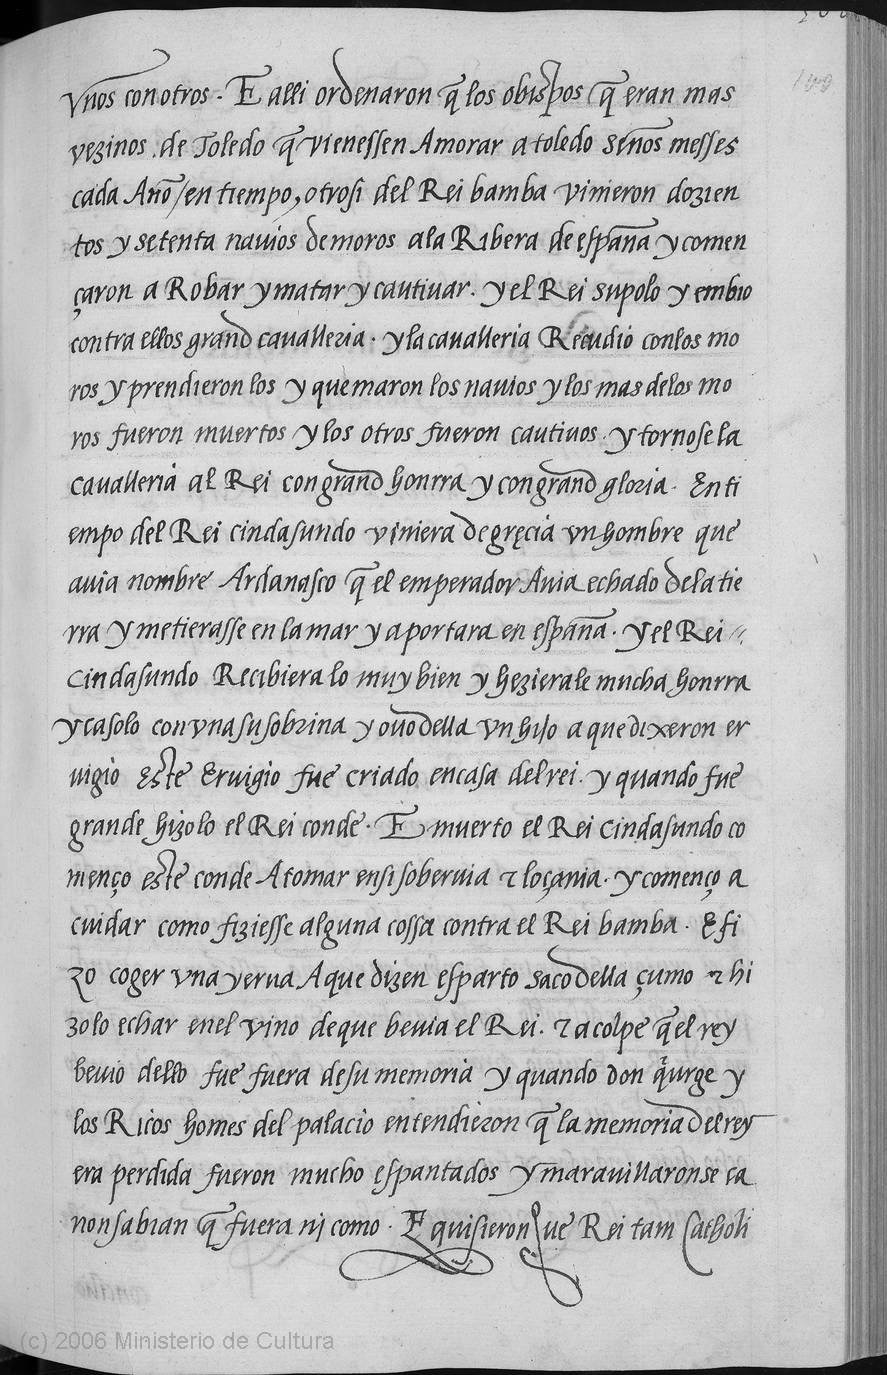 vnos con otros. E alli ordenaron q̃ los obispos q̃ eran mas
vezinos de Toledo q̃ viniessen Amorar a toledo seños messes
cada Año / en tiempo, otrosi del Rei bamba vinieron dozien
tos y setenta nauios de moros ala Ribera de españa y comen
çaron a Robar y matar y cautiuar. y el Rei supolo y embio
contra ellos grand cavalleria. y la caualleria Recudio con los mo
ros y prendieron los y quemaron los nauios y los mas delos mo
ros fueron muertos y los otros fueron cautiuos. y tornose la
caualleria al Rei con grand honrra y con grand gloria. En ti
empo del Rei cindasundo viniera de greçia vn hombre que
auia nombre Ardanasco q̃ el emperador Auia echado dela tie
rra y metierasse en la mar y aportara en españa. y el Rei
cindasundo Recibiera lo muy bien y hezierale mucha honrra
y casolo con vna su sobrina y ouo della vn hijo a que dixeron er
uigio Este Eruigio fue criado en casa del rei. y quando fue
grande hizolo el Rei conde. E muerto el Rei Cindasundo co
menço este conde A tomar en si soberuia ⁊ loçania. y començo a
cuidar como fiziesse alguna cossa contra el Rei bamba. E fi
zo coger vna yerua A que dizen esparto saco della çumo ⁊ hi
zolo echar en el vino de que beuia el Rei. ⁊ a colpe q̃ el rey
beuio dello fue fuera de su memoria y quando don q̃urge y
los Ricos homes del palacio entendieron q̃ la memoria del rey
era perdida fueron mucho espantados y marauillaronse ca
non sabian q̃ fuera nj como. E quisieron que Rei tam Catholi
(c) 2006 Ministerio de Cultura